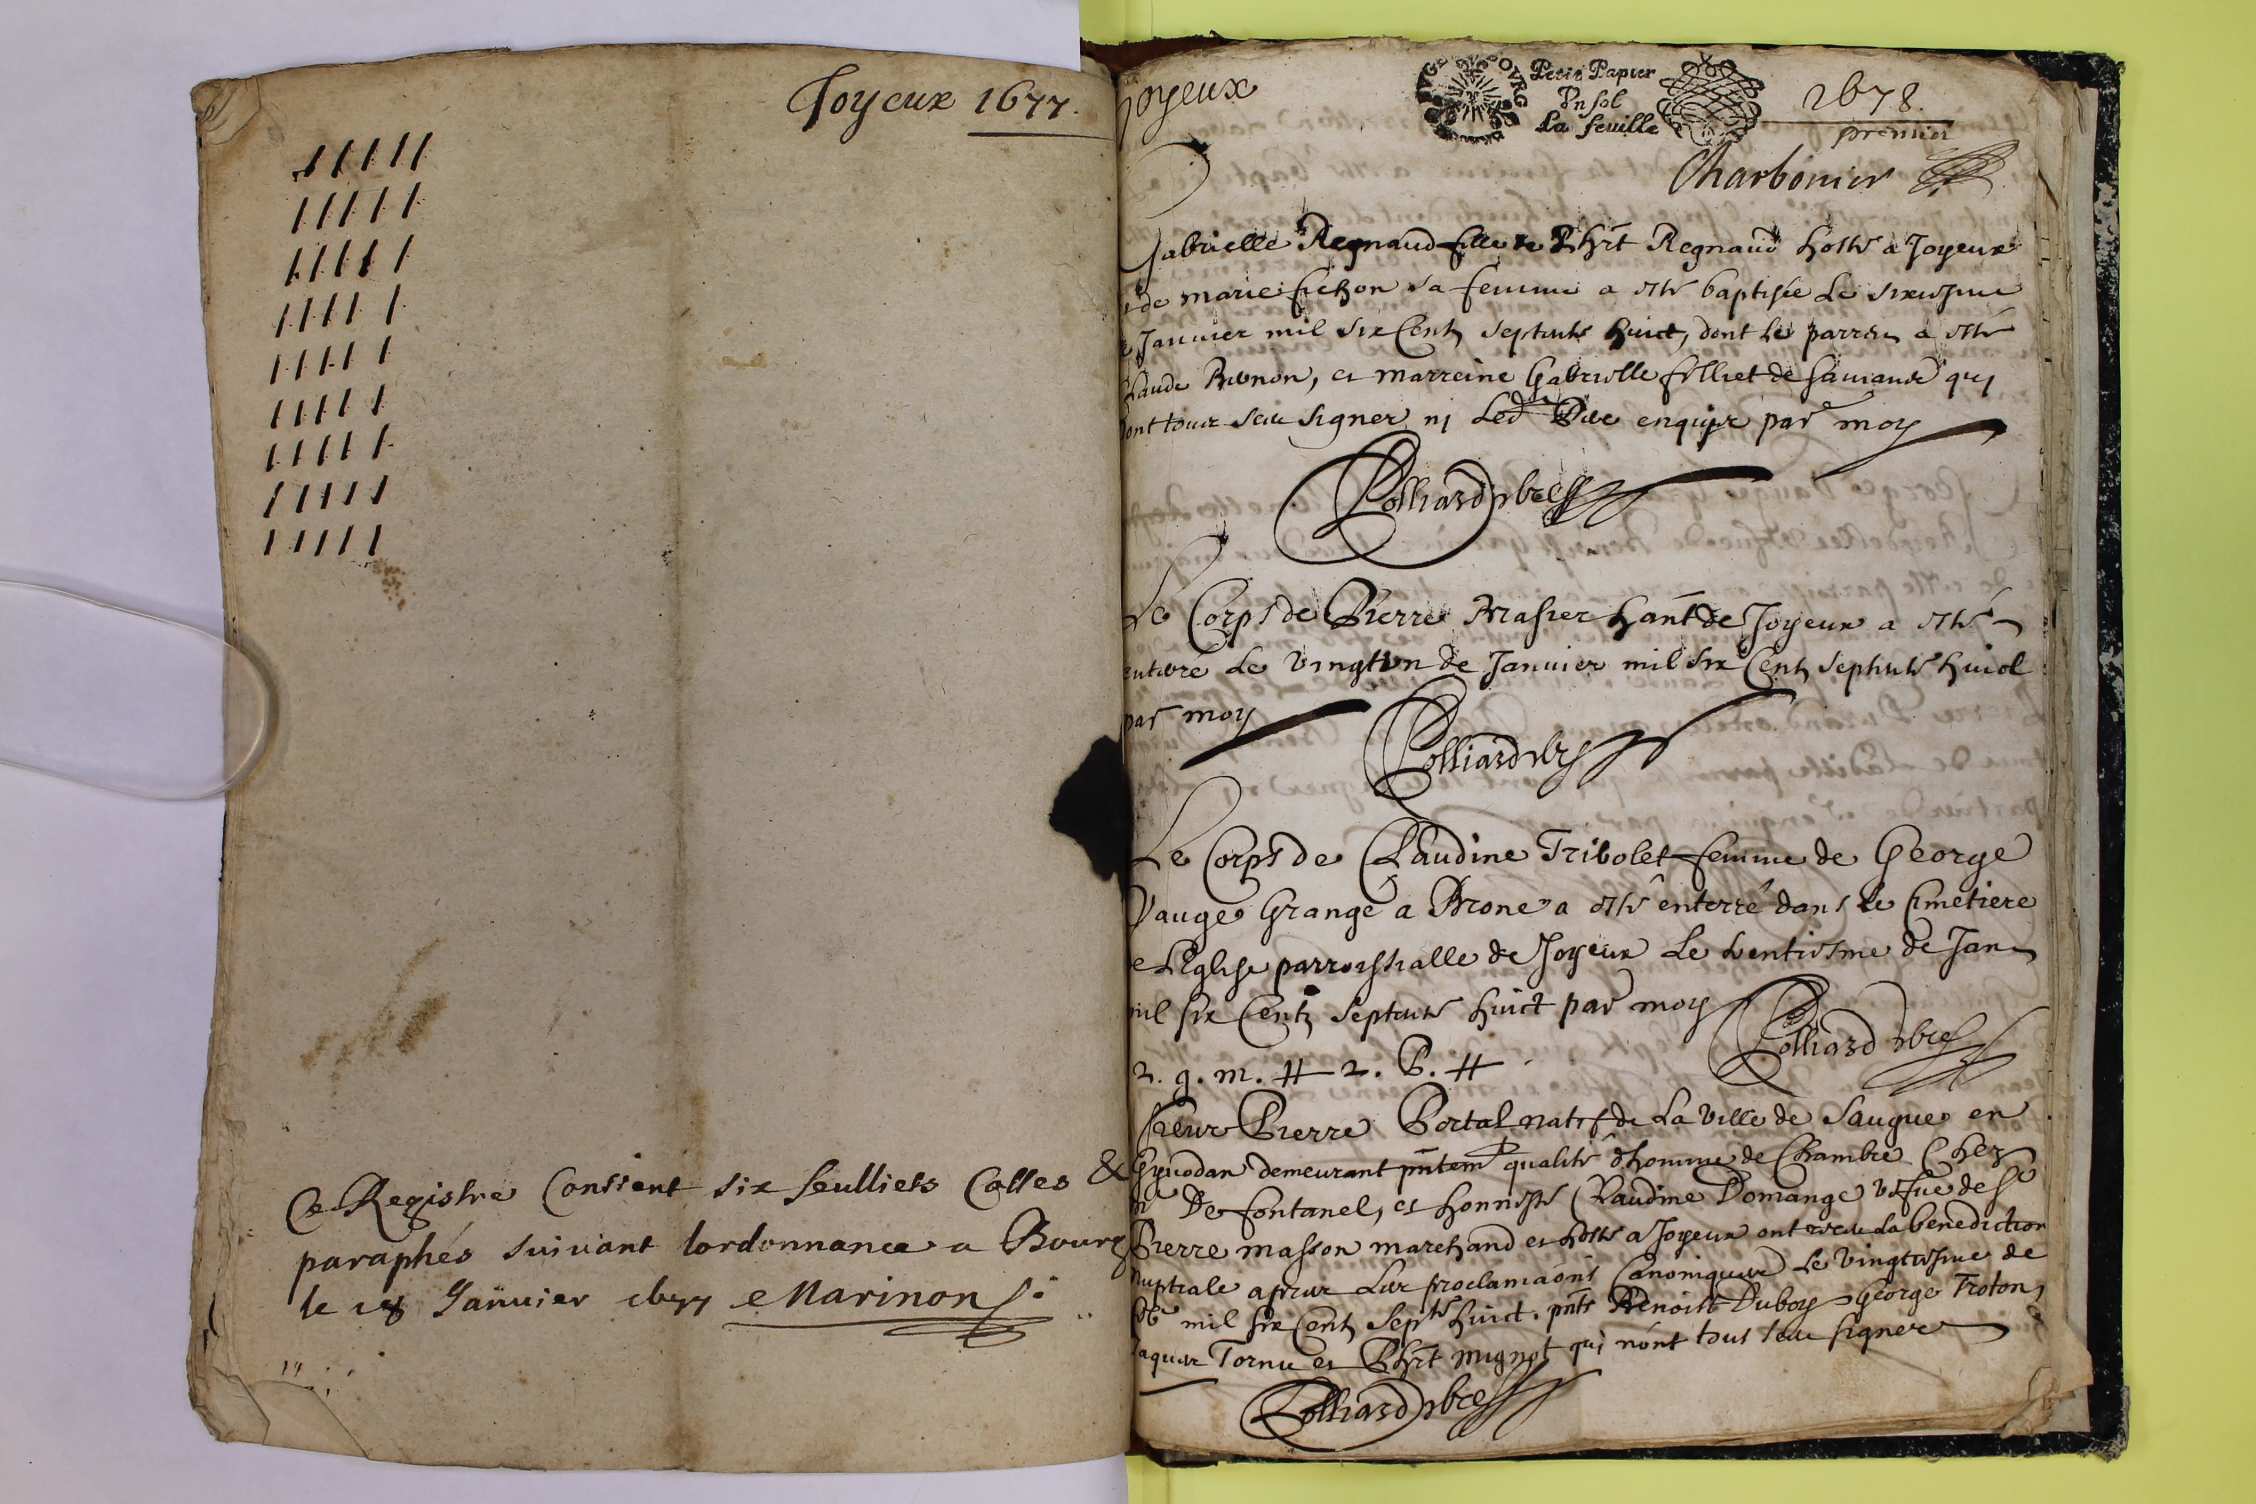 Joyeux 1677.
Ce Registre Contient six feulliets Cottes &
paraphés suivant lordonnance a Bourg
le 18 Janvier 1677 Marinon
Joyeux
BOURG
Petit Papier
Vn sol
La feuille
1678.
premier
Charbonier
Gabrielle Regnaud fille de Phrt Regnaud hoste a Joyeux
de marie fichon sa femme a esté baptisée Le sixiesme
Janvier mil six Cents septante huict, dont le parrein a esté
laude Bernon, et marreine Gabrielle filliet de qui
ont sceu signer ni Led enquis par moy
Polliard pbre
Le Corps de Pierre Brasier hant de Joyeux a esté
enterré Le vingt un de Janvier mil six Cents septante huict
par moy
Polliard pbre
Le Corps de Claudine Tribolet femme de George
Vauge Granger a Brone a esté enterré dans le Cimetiere
de Leglise parroissialle de Joyeux Le trentiesme de Jan
mil six Cents septante huict par moy
Polliard pbre
2. g. m. # 2. B. #
sieur Pierre Portal natif de La ville de Saugue en
Gyuodan demeurant pntemt qualité dhomme de Chambre Chez
De fontanel, et honneste Claudine Domange vefue de
Pierre masson marchand et hoste a Joyeux ont receu La benediction
nuptiale apres Les proclamaons Canoniques Le vingtiesme de
mil six Cents septte huict. pnts Benoist Duboys George Troton,
Jaques Tornu et Phrt mignot qui nont tous sceu signer
Polliard pbre